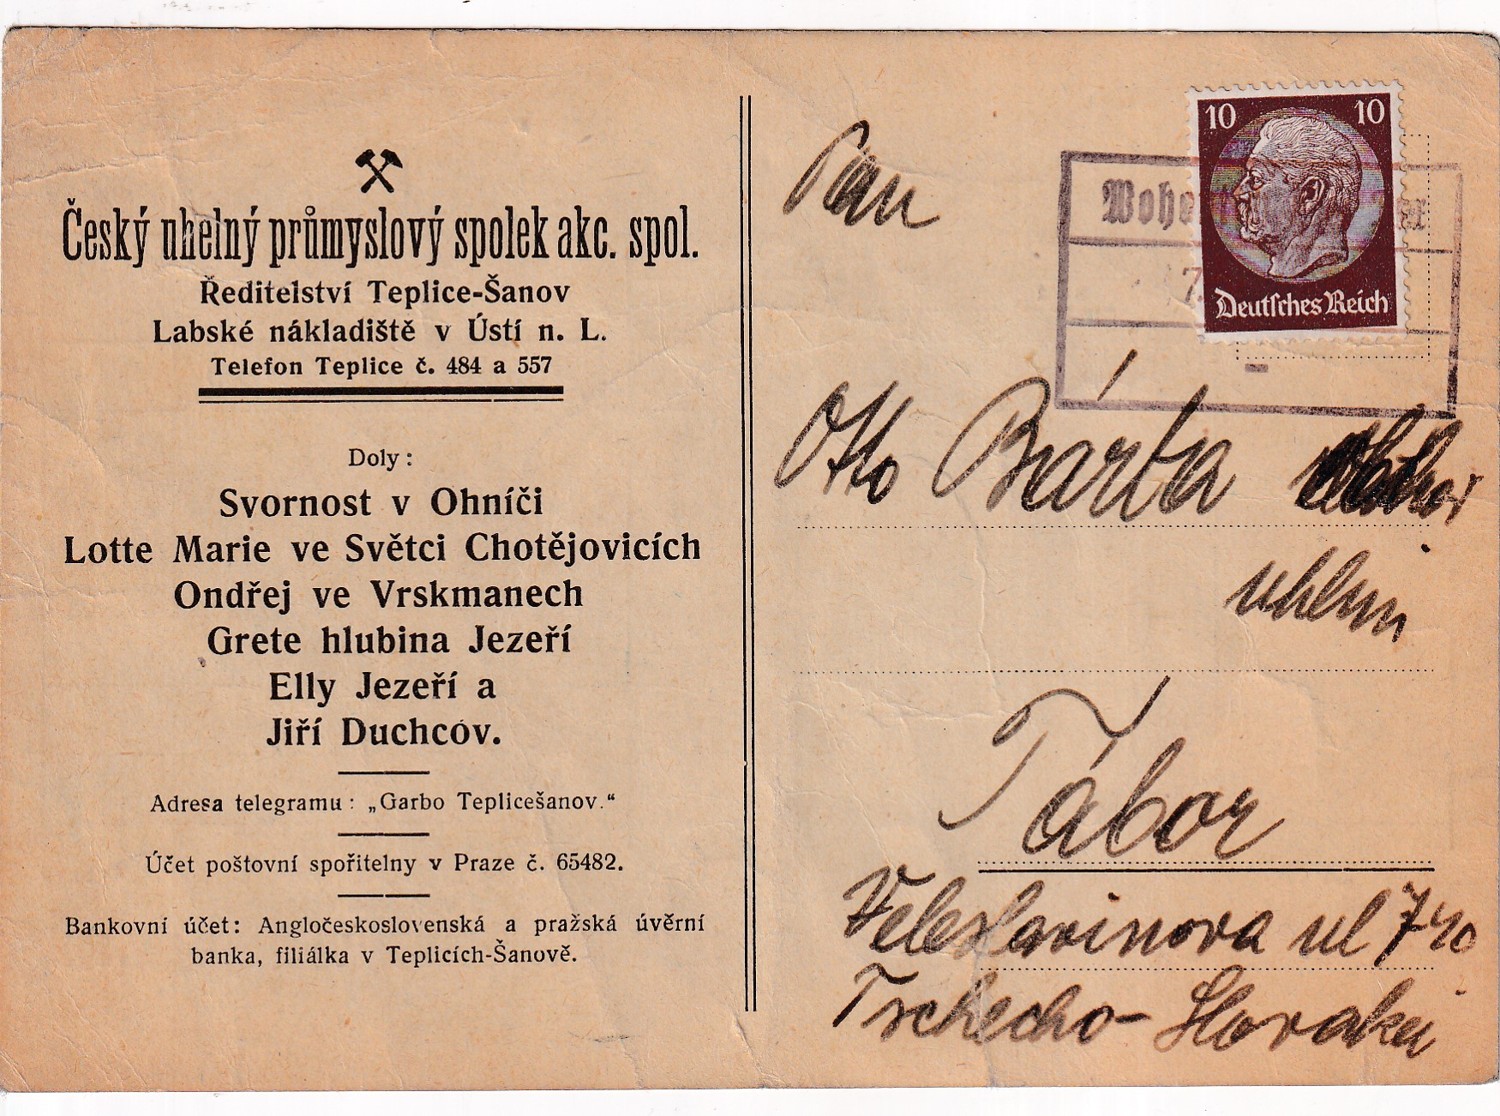 Český uhelný průmyslový spolek akc. spol.
Ředitelství Teplice-Šanov
Labské nákladiště v Ústí n. L.
Telefon Teplice č. 484 a 557
Doly:
Svornost v Ohníči
Lotte Marie ve Světci Chotějovicích
Ondřej ve Vrskmanech
Grete hlubina Jezeří
Elly Jezeří a
Jiří Duchcov.
Adresa telegramu: „Garbo Teplicešanov.“
Účet poštovní spořitelny v Praze č. 65482.
Bankovní účet: Angločeskoslovenská a pražská úvěrní
banka, filiálka v Teplicích-Šanově.
10 10
Deutsches Reich
Pan
Otto Bárta
uhlím
Tábor
Veleslavinova ul 740
Tschecho-Slovakei